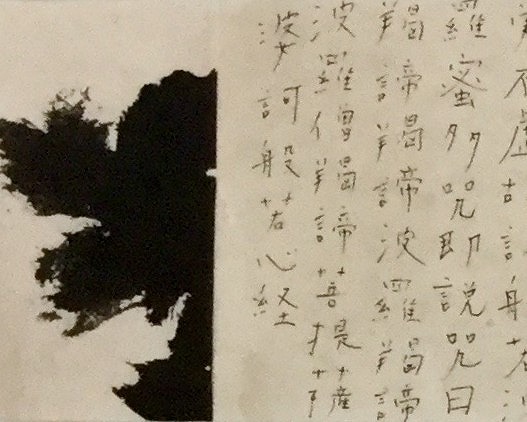 不虚故説般若
羅蜜多咒即説咒曰
羯諦羯諦波羅羯諦
波羅僧羯諦菩提薩
婆訶般若心経